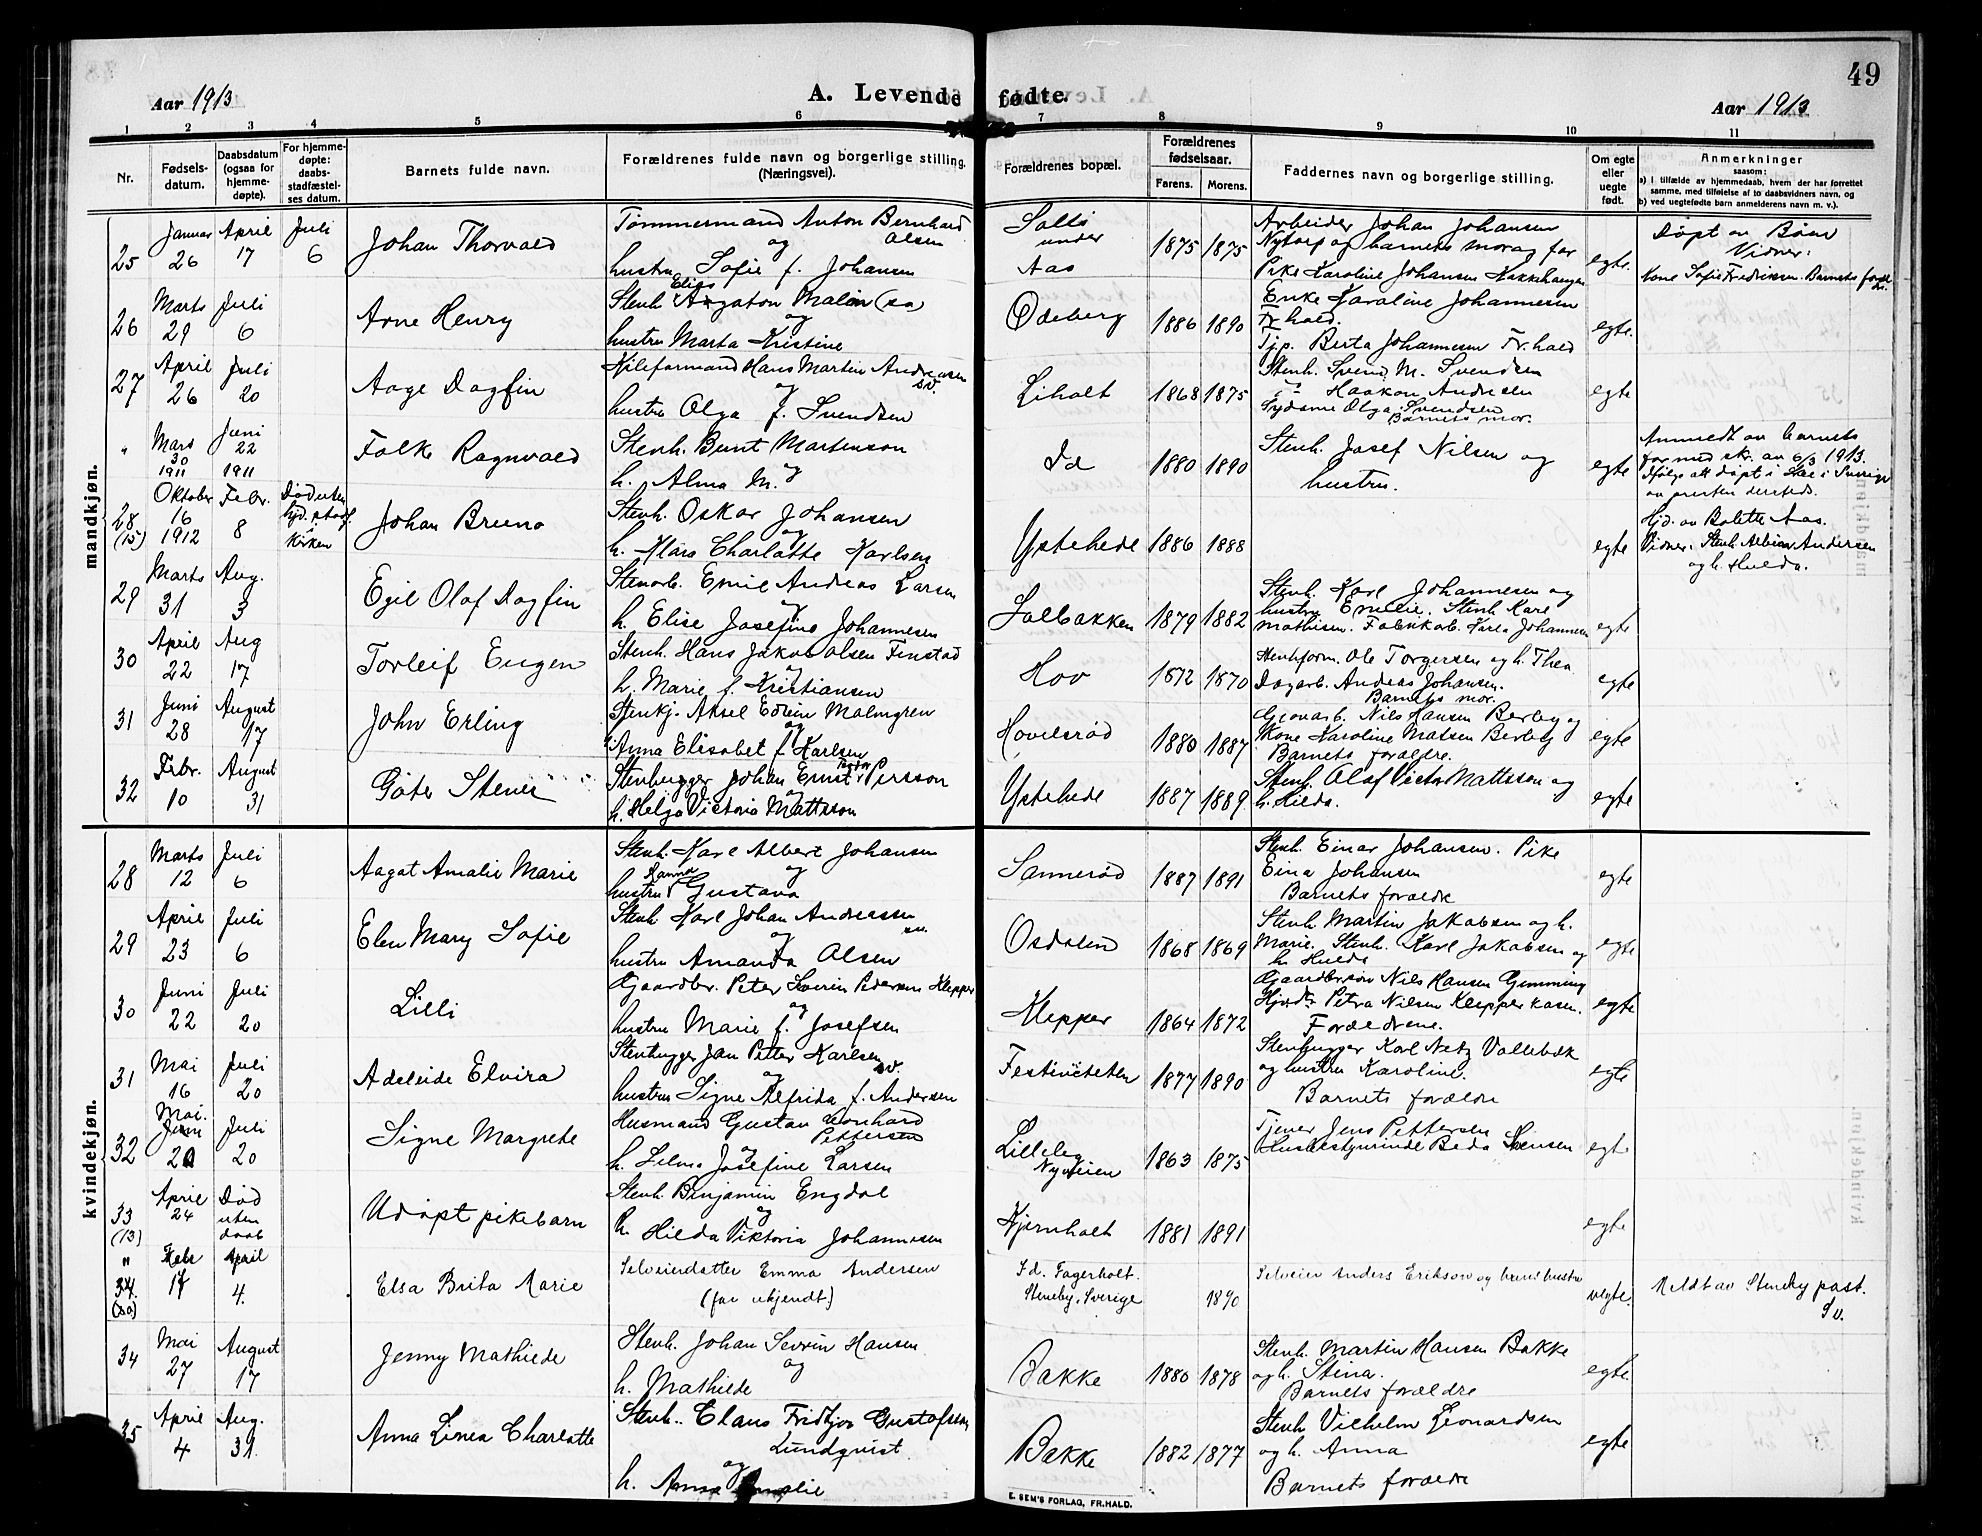 49
Aar 1913
A. Levende fødte.
Aar 1913
1 2 3 4 5 6 7 8 9 10 11
Nr.
Fødsels-
datum.
Daabsdatum
(ogsaa for
hjemme-
døpte).
For hjemme-
døpte:
daabs-
stadfæstel-
ses datum.
Barnets fulde navn.
Forældrenes fulde navn og borgerlige stilling.
(Næringsvei).
Forældrenes bopæl.
Forældrenes
fødselsaar.
Farens. Morens.
Faddernes navn og borgerlige stilling.
Om egte
eller
uegte
født.
Anmerkninger
saasom:
a) I tilfælde av hjemmedaab, hvem der har forrettet
samme, med tilføielse af to daabsvidners navn, og
b) ved uegtefødte barn anmelderens navn m. v.).
mandkjøn.
25 Januar 26 April 17 Juli 6
Johan Thorvald
Tømmermand Anton Bernhard Olsen
og
hustru Sofie f. Johansen
under Aas
1875 1875
Arbeider Johan Johansen
Nytorp og barnets mor og far
Pike Karoline Johansen
egte.
Døpt av
Vidner:
Kone Sofie Fredriksen. Barnets
26 Marts 29 Juli 6
Arne Henry
Stenh. Elias Agaton Malin (sv)
og
hustru Marta Kristine
Ødeberg
1886 1890
Enke Karoline Johannesen
Fr.hald.
Tjp. Berta Johannesen Fr.hald
egte.
27 April 26 Juli 20
Aage Dagfin
Kileformand Hans Martin Andreasen sv.
og
hustru Olga f. Svendsen
Liholt
1868 1875
Stenh. Svend M. Svendsen
Haakon Andresen
Sydame Olga Svendsen
Barnets mor.
egte
" Mars 30 1911 Juni 22 1911
Falk Ragnvald
Stenh. Bunt Martenson
og
h. Alma M.
Id
1880 1890
Stenh. Josef Nilsen og
hustru.
egte
Anmeldt av barnets
far med sk. av 6/3 1913.
døpt i i Sverige
av presten dersteds.
28 (15) Oktober 16 1912 Febr. 8
kirken
Johan Bruno
Stenh. Oskar Johansen
og
h. Klara Charlotte Karlsen
Ystehede
1886 1888
egte
Hjd. av Bolette Aas.
Vidner. Stenh Albin Andersen
og h. Hulda.
29 Marts 31 Aug. 3
Egil Olaf Dagfin
Stenarb. Emil Andreas Larsen
og
h. Elise Josefine Johannesen
Solbakken
1879 1882
Stenh. Karl Johannesen og
hustru Emelie. Stenh Karl
Mathisen. Fabrikarb. Karla Johannesen
egte
30 April 22 Aug 17
Torleif Eugen
Stenh. Hans Jakob Olsen Finstad
og
h. Marie f. Kristiansen
Hov
1872 1870
Stenhform. Ole Torgersen og h. Thea
Dagarb. Andreas Johansen.
Barnets mor.
egte
31 Juni 28 August 17
John Erling
Stenkj. Aksel Edvin Malmgren
og
Anna Elisabet f. Karlsen
Hovelsrød
1880 1887
Nils Hansen Berby og
Kone Karoline Matsen Berby
Barnets forældre.
egte
32 Febr. 10 August 31
Göte Stener
Stenhugger Johan Ernst Persson
og
h. Helga Victoria Mattsson
Ystehede
1887 1889
Stenh. Olof Victor Mattsson og
h. Hilda.
egte
kvindekjøn.
28 Marts 12 Juli 6
Aagot Amalie Marie
Stenh. Karl Albert Johansen
og
hustru Hanna Gustava
Sannerød
1887 1891
Stenh. Einar Johansen. Pike
Eina Johansen
Barnets forældre
egte
29 April 23 Juli 6
Elen Mary Sofie
Stenh. Karl Johan Andreassen sv.
og
hustru Amanda Olsen
Osdalen
1868 1869
Stenh. Martin Jakobsen og h.
Marie. Stenh. Karl Jakobsen og
h. Hulda
egte
30 Juni 22 Juli 20
Lilli
Gjaardbr. Peter Severin Pedersen Klepper
og
hustru Marie f. Josefsen
Klepper
1864 1872
Gjaardbrson Nils Hansen Gimming
Hjvdt. Petra Nilsen Klepperkasen.
Forældrene.
egte
31 Mai 16 Juli 20
Adeleide Elvira
Stenhugger Jan Petter Karlsen sv.
og
hustru Signe Alfrida f. Andersen
Festiviteten
1877 1890
Stenhugger Karl Netz Vollebæk
og hustru Karoline.
Barnets forældre
egte
32 Mai. Juni 20 Juli 20
Signe Margrete
Husmand Gustav Leonhard
Pettersen
og
h. Selma Josefine Larsen
Lilleleg
Nyveien
1863 1875
Tjener Jens Pettersen
Husbestyrinde Beda Svensen
egte
33 (13) April 24 Død uten daab
Udøpt pikebarn
Stenh. Benjamin Engdal
og
h. Hilda Viktoria Johannesen
Kjernholt
1881 1891
egte
" 34. (20) Febr 17 April 4.
Elsa Brita Marie
Selveierdatter Emma Andersen
(far ukjendt)
Id. Fagerholt.
Steneby, Sverige
1890
Selveier Anders Erikson og hans hustru
uegte.
Meldt av Steneby past.
Sv.
34 Mai 27 August 17
Jenny Mathilde
Stenh. Johan Severin Hansen
og
h. Mathilde
Bakke
1880 1878
Stenh. Martin Hansen Bakke
og h. Stina.
Barnets forældre
egte.
35 April 4 Aug. 31.
Anna Linea Charlotte
Stenh. Claus Fridtjov Gustafsson
Lundqvist
og
h. Anna Amalie
Bakke
1882 1877
Stenh Vilhelm Leonardsen
og h. Anna
Barnets forældre
egte
E. SEM'S FORLAG, FR.HALD.